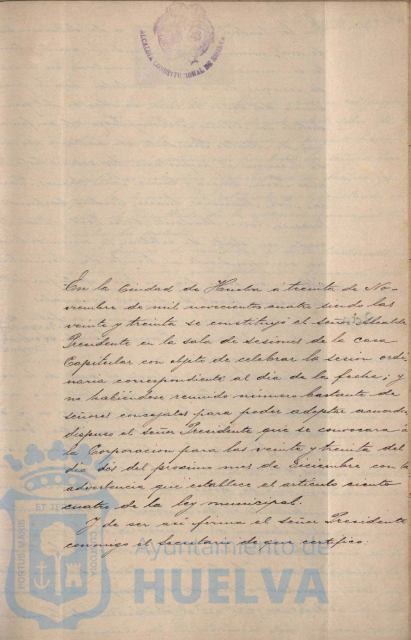 ALCALDIA CONSTITUCIONAL DE HUELVA
En la Ciudad de Huelva a treinta de No-
viembre de mil novecientos cuatro siendo las
veinte y treinta se constituyó el señor Alcalde
Presidente en la sala de sesiones de la casa
Capitular con objeto de celebrar la sesion ordi
naria correspondiente al dia de la fecha; y
no habiendose reunido número bastante de
señores concejales para poder adoptar acuerdo
dispuso el señor Presidente que se convocara á
la Corporacion para las veinte y treinta del
dia dos del proximo mes de Diciembre con la
advertencia que establece el articulo ciento
cuatro de la ley municipal.
Y de ser asi firma el Señor Presidente
conmigo el Secretario de que certifico.
PORTUS MARIS ET TERRAE CUSTODIA
Ayuntamiento de
HUELVA